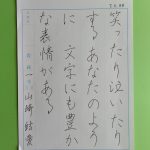 笑ったり泣いたり
するあなたのよう
に 文字にも豊か
な表情がある
山﨑結愛